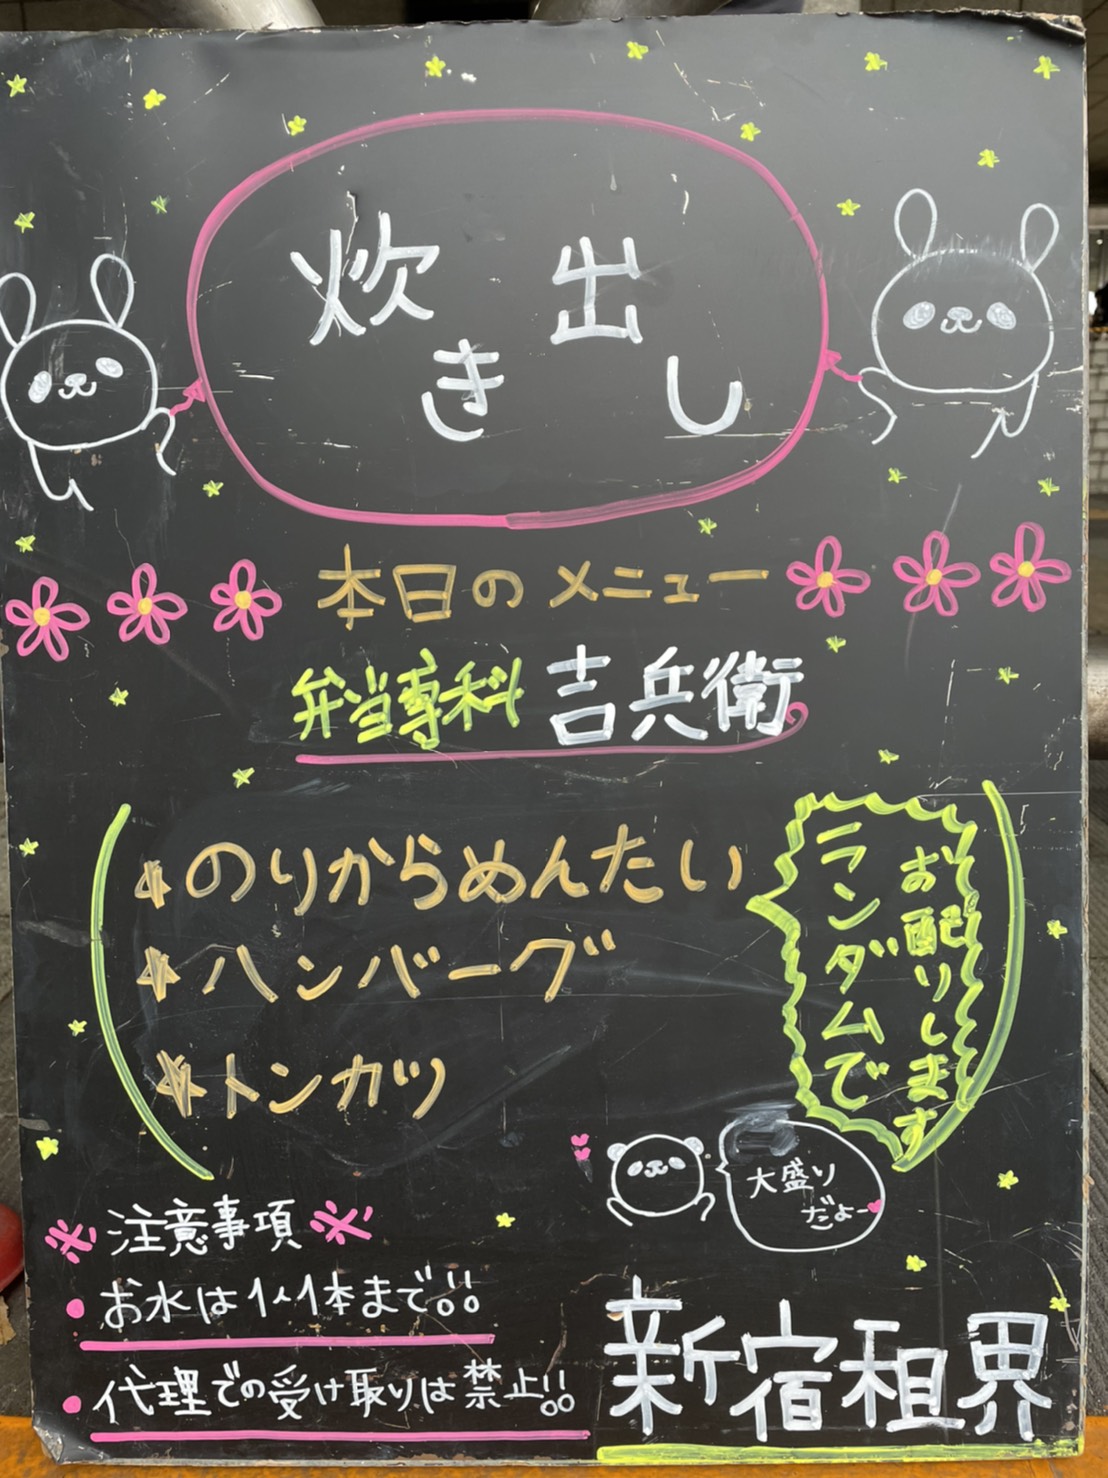 炊き出し
本日のメニュー
弁当専科 吉兵衛
のりからめんたい
ハンバーグ
トンカツ
ランダムで
お配りします
大盛り
だよー
※ 注意事項 ※
・お水は1人1本まで!!
・代理での受け取りは禁止!!
新宿租界